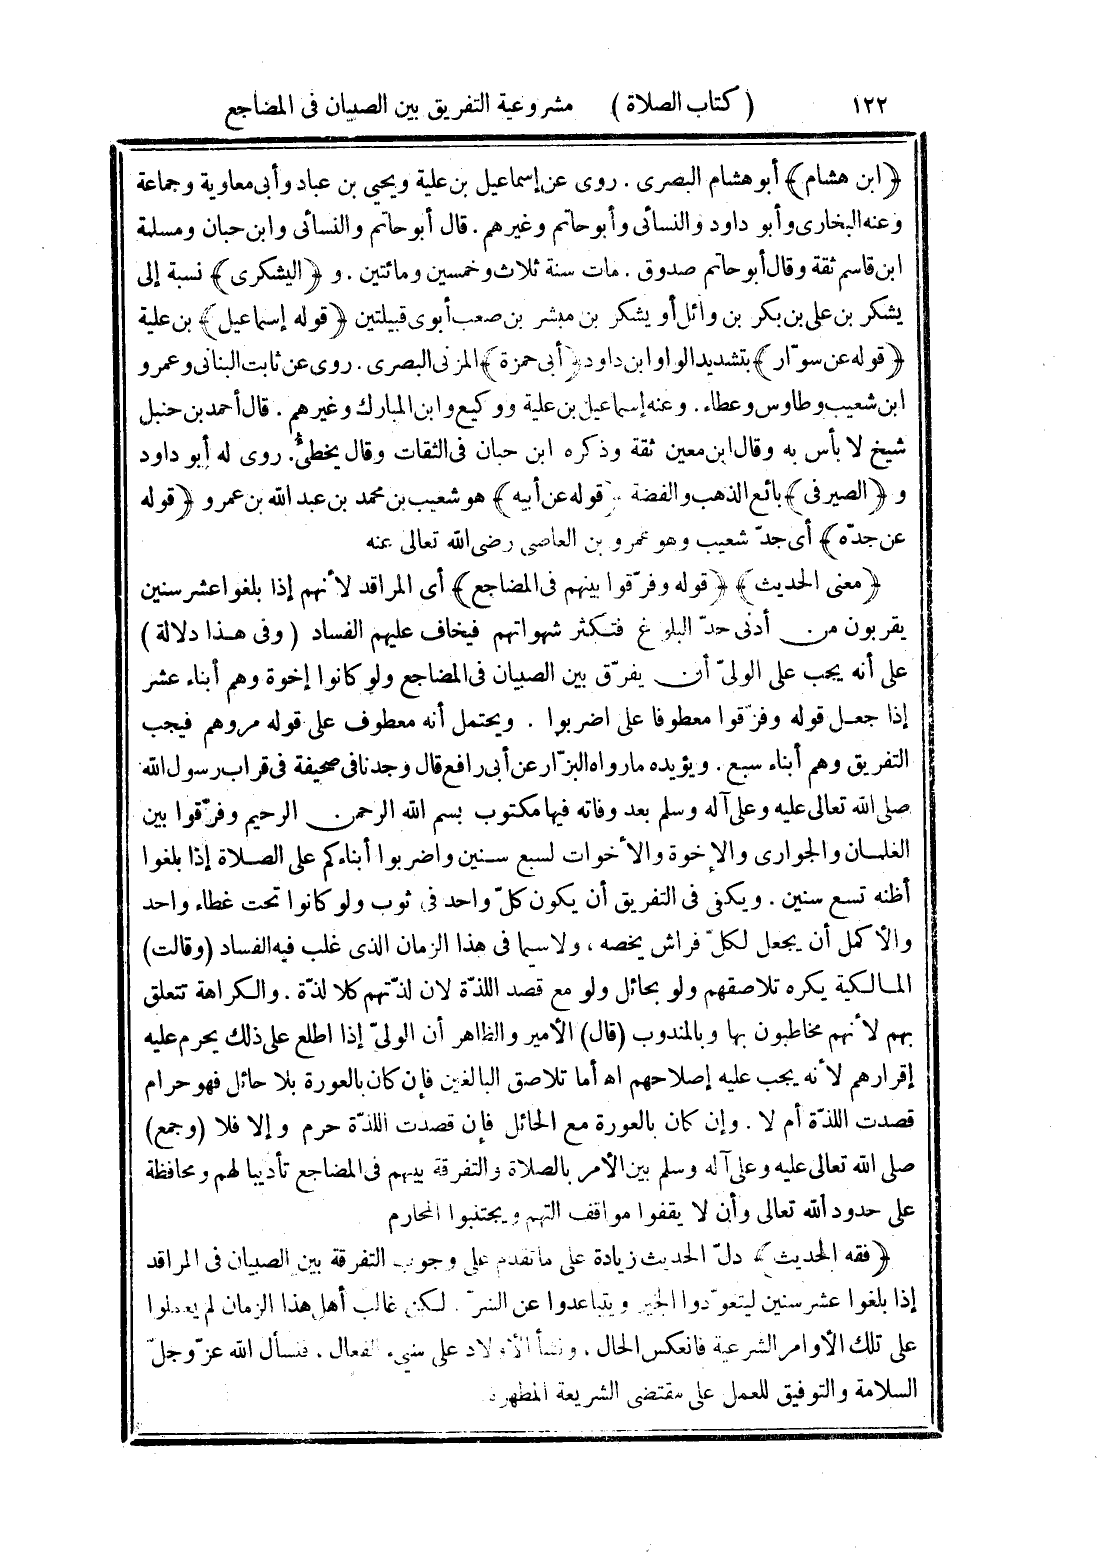 ١٢٢ (كتاب الصلاة) مشروعية التفريق بين الصبيان فى المضاجع
﴿ابن هشام﴾ أبو هشام البصرى . روى عن إسماعيل بن علية ويحيى بن عباد وأبى معاوية وجماعة
وعنه البخارى وأبو داود والنسائى وأبو حاتم وغيرهم . قال أبو حاتم والنسائى وابن حبان ومسلمة
ابن قاسم ثقة وقال أبو حاتم صدوق . مات سنة ثلاث وخمسين ومائتين . و ﴿اليشكرى﴾ نسبة إلى
يشكر بن على بن بكر بن وائل أو يشكر بن مبشر بن صعب أبوى قبيلتين ﴿قوله إسماعيل﴾ بن علية
﴿قوله عن سوّار﴾ بتشديد الواو ابن داود ﴿أبى حمزة﴾ المزنى البصرى . روى عن ثابت البنانى وعمرو
ابن شعيب وطاوس وعطاء . وعنه إسماعيل بن علية ووكيع وابن المبارك وغيرهم . قال أحمد بن حنبل
شيخ لا بأس به وقال ابن معين ثقة وذكره ابن حبان فى الثقات وقال يخطئ . روى له أبو داود
و ﴿الصيرفى﴾ بائع الذهب والفضة . ﴿قوله عن أبيه﴾ هو شعيب بن محمد بن عبد الله بن عمرو و ﴿قوله
عن جدّه﴾ أى جدّ شعيب وهو عمرو بن العاصى رضى الله تعالى عنه
﴿معنى الحديث﴾ ﴿قوله وفرّقوا بينهم فى المضاجع﴾ أى المراقد لأنهم إذا بلغوا عشر سنين
يقربون من أدنى حدّ البلوغ فتكثر شهواتهم فيخاف عليهم الفساد (وفى هذا دلالة)
على أنه يجب على الولىّ أن يفرّق بين الصبيان فى المضاجع ولو كانوا إخوة وهم أبناء عشر
إذا جعل قوله وفرّقوا معطوفا على اضربوا . ويحتمل أنه معطوف على قوله مروهم فيجب
التفريق وهم أبناء سبع . ويؤيده مارواه البزّار عن أبى رافع قال وجدنا فى صحيفة فى قراب رسول الله
صلى الله تعالى عليه وعلى آله وسلم بعد وفاته فيها مكتوب بسم الله الرحمن الرحيم وفرّقوا بين
الغلمان والجوارى والإخوة والأخوات لسبع سنين واضربوا أبناءكم على الصلاة إذا بلغوا
أظنه تسع سنين . ويكفى فى التفريق أن يكون كلّ واحد فى ثوب ولو كانوا تحت غطاء واحد
والأكمل أن يجعل لكلّ فراش يخصه ، ولاسيما فى هذا الزمان الذى غلب فيه الفساد (وقالت)
المالكية يكره تلاصقهم ولو بحائل ولو مع قصد اللذّة لان لذّتهم كلا لذّة . والكراهة تتعلق
بهم لأنهم مخاطبون بها وبالمندوب (قال) الأمير والظاهر أن الولىّ إذا اطلع على ذلك يحرم عليه
إقرارهم لأنه يجب عليه إصلاحهم اه أما تلاصق البالغين فإن كان بالعورة بلا حائل فهو حرام
قصدت اللذّة أم لا . وإن كان بالعورة مع الحائل فإن قصدت اللذّة حرم وإلا فلا (وجمع)
صلى الله تعالى عليه وعلى آله وسلم بين الأمر بالصلاة والتفرقة بينهم فى المضاجع تأديبا لهم ومحافظة
على حدود الله تعالى وأن لا يقفوا مواقف التهم ويجتنبوا المحارم
﴿فقه الحديث﴾ دلّ الحديث زيادة على ماتقدم على وجوب التفرقة بين الصبيان فى المراقد
إذا بلغوا عشر سنين ليتعوّدوا الخير ويتباعدوا عن الشرّ . لكن غالب أهل هذا الزمان لم يعملوا
على تلك الأوامر الشرعية فانعكس الحال ، ونشأ الأولاد على سيىء الفعال . فنسأل الله عزّ وجلّ
السلامة والتوفيق للعمل على مقتضى الشريعة المطهرة